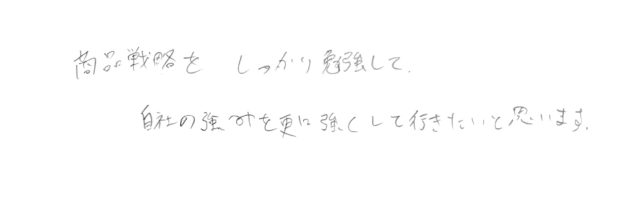 商品戦略を しっかり勉強して.
自社の強みを更に強くして行きたいと思います.